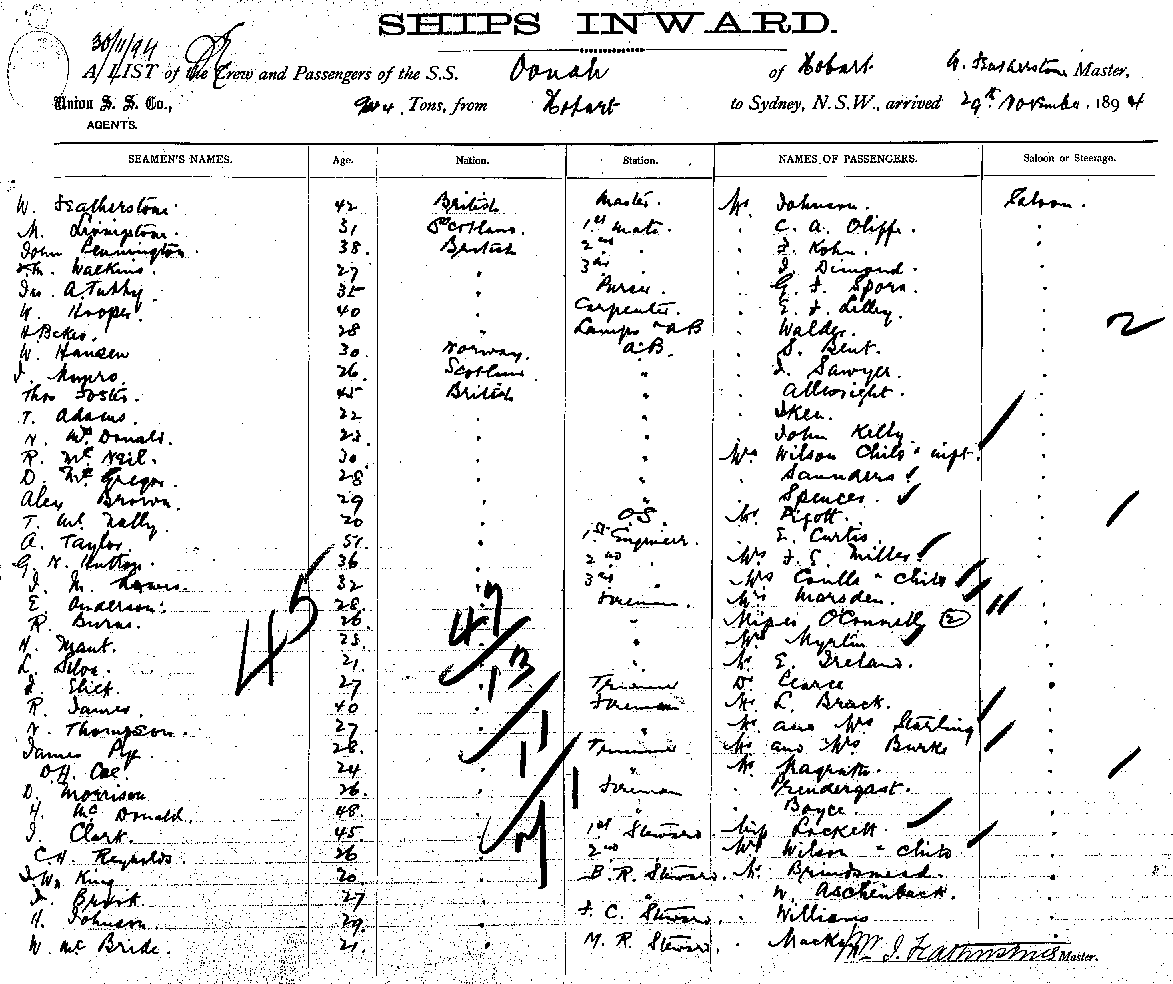 SHIPS INWARD.
30/11/94
A LIST of the Crew and Passengers of the S.S. Oonah of Hobart W. Featherstone Master,
Union S. S. Co., Tons, from Hobart to Sydney, N.S.W., arrived 29th November 1894
AGENTS.
SEAMEN'S NAMES. Age. Nation. Station. NAMES OF PASSENGERS. Saloon or Steerage.
W. Featherstone 42 British Master. Mr Johnson. Saloon.
M. Livingstone. 31 Scotland. 1st Mate. " C. A. Oliffe "
John Pennington 38. British 2nd " " J. Kohn. "
Watkins. 27 " 3rd " " J. Dimond. "
Jas. A. Tubby. 35 " Purser. " G. J. Spora. "
W. Hooper. 40 " Carpenter. " E. J. Lilley. "
H Baker. 28 " Lamps & AB " Walder. " 2
W. Hansen 30. Norway. AB. " S. Bent. "
J. Munro. 26 Scotland " " J. Sawyer. "
Thos Foster. 45 British " " Allwright. "
T. Adams. 22 " " " Iken. "
N. McDonald. 23. " " " John Kelly. "
R. McNeil. 30. " " Mrs Wilson Child & inft. "
D. McGregor. 28 " " " Saunders "
Alex Brown. 29 " " " Spences. "
T. McNally. 20 " OS. Mr Pigott. "
A. Taylor. 51. " 1st Engineer. " E. Curtis. "
G. N. Hutton 36 " 2nd " Mrs J. E. Miller "
J. M. 32 " 3rd " Mrs Coulls & Child "
E. Anderson. 28. " Fireman. Mrs Marsden. " 11
R. Burns. 26 " " Misses O'Connelly (2) "
N. Mant. 23. " " Mrs Myrtin "
L. Silva. 21. " " Mr E. Ireland. "
J. Elick. 27 " Trimmer Dr Pearce "
R. James. 40 " Fireman Mr L. Brack. "
N. Thompson. 27 " " Mr and Mrs Starling "
James Pye 28. " Trimmer Mr and Mrs Burke "
D H. Coe. 24 " " Mr Magrath. "
D. Morrison 26. " Fireman " Prendergast. "
H. McDonald. 48. " " " Boyce "
J. Clark. 45 " 1st Steward Miss Lockett. "
C H. Reynolds. 26 " 2nd " Mrs Wilson & child "
J. Wm King 20. " B. R. Steward. Mr Brindsmead. "
J. Brook. 27 " " " W. Aschenback. "
H. Johnson. 29. " F. C. Steward " Williams "
W. McBride. 21. " M. R. Steward. " Mackay
45
47
13
11
1
Master.